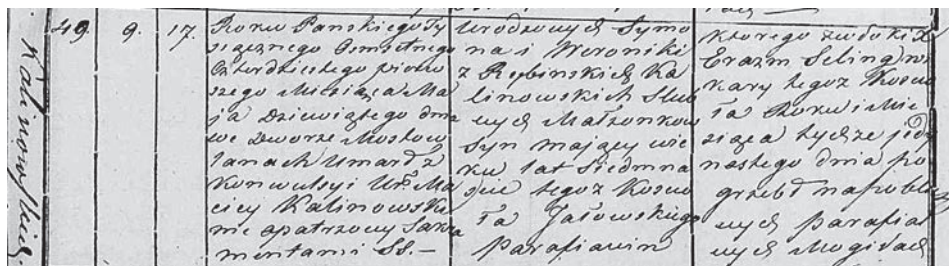 Kalinowskich.
49. 9. 17.
Roku Pańskiego Ty
siącznego Ośmsetnego
Czterdziestego pierw
szego Miesiąca Ma
ja Dziewiątego dnia
we Dworze Mostow
lanach Umarł z
Konwulsyi Ur. Ma
ciey Kalinowski
nie opatrzony Sakra
mentami SS. —
Urodzonych Symo
na i Weroniki
z Rębinskich Ka
linowskich Slub
nych Małżonkow
Syn maiący wie
ku lat siedmna
ście tegoż Koscio
ła Jałowskiego
Parafianin
Ktorego zwłoki X
Erazm Seling wi
kary tegoż Koscio
ła Roku i Mie
siąca tychże jede
nastego dnia po
grzebł na
nych parafial
nych Mogiłach